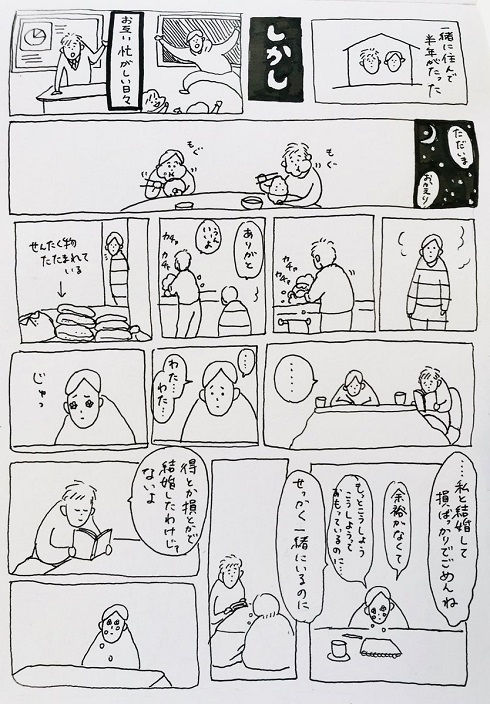 一緒に住んで
半年がたった
しかし
お互い忙がしい日々
ただいま
おかえり
もぐ
もぐ
カチャ
カチャ
ありがと
うん
いいよ
カチャ
カチャ
せんたく物
たたまれて
いる
……
…
わた…
わた…
じゅっ
……私と結婚して
損ばっかりでごめんね
余裕がなくて
もっとこうしよう
こうしようって
おもっているのに
せっかく一緒にいるのに
得とか損とかで
結婚したわけじゃ
ないよ